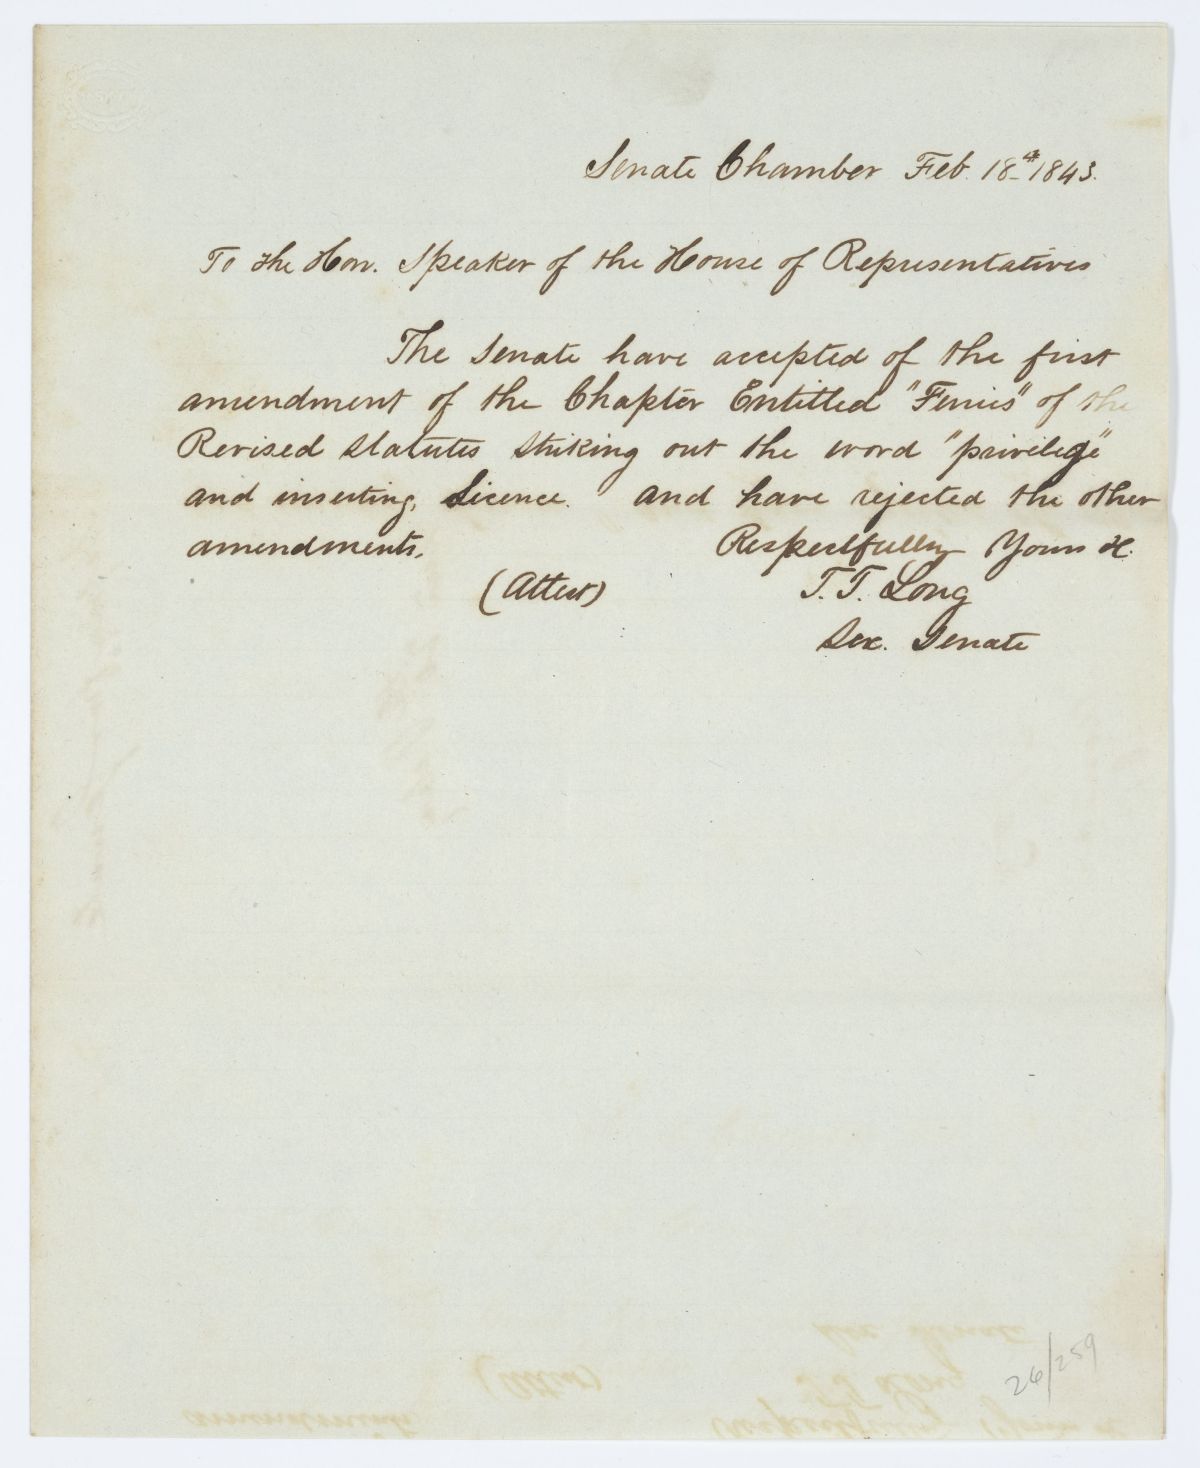 Senate Chamber Feb. 18th 1843.
To the Hon. Speaker of the House of Representatives
The Senate have accepted of the first
amendment of the Chapter Entitled "Ferries" of the
Revised Statutes striking out the word "privilege"
and inserting, Licence. and have rejected the other
amendments. Respectfully Yours &.
(Attest) T. T. Long
Sec. Senate
26/259